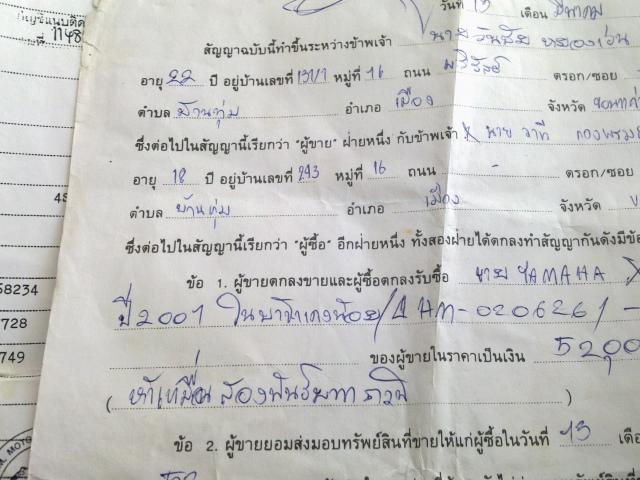 บัญชีแนบติด
ที่ 1148
วันที่ 13 เดือน มีนาคม
สัญญาฉบับนี้ทำขึ้นระหว่างข้าพเจ้า นายวันชัย
อายุ 22 ปี อยู่บ้านเลขที่ 131/1 หมู่ที่ 16 ถนน ตรอก/ซอย
ตำบล บ้านทุ่ม อำเภอ เมือง จังหวัด ขอนแก่น
ซึ่งต่อไปในสัญญานี้เรียกว่า "ผู้ขาย" ฝ่ายหนึ่ง กับข้าพเจ้า X นาย วาที
อายุ 18 ปี อยู่บ้านเลขที่ 293 หมู่ที่ 16 ถนน - ตรอก/ซอย
ตำบล บ้านทุ่ม อำเภอ เมือง จังหวัด ข
ซึ่งต่อไปในสัญญานี้เรียกว่า "ผู้ซื้อ" อีกฝ่ายหนึ่ง ทั้งสองฝ่ายได้ตกลงทำสัญญากันดังมีข้อ
ข้อ 1. ผู้ขายตกลงขายและผู้ซื้อตกลงรับซื้อ ขาย YAMAHA X
ปี 2001 0206261 -
ของผู้ขายในราคาเป็นเงิน 5200
(ห้าหมื่นสองพันบาทถ้วน)
ข้อ 2. ผู้ขายยอมส่งมอบทรัพย์สินที่ขายให้แก่ผู้ซื้อในวันที่ 13 เดื
58234
728
749